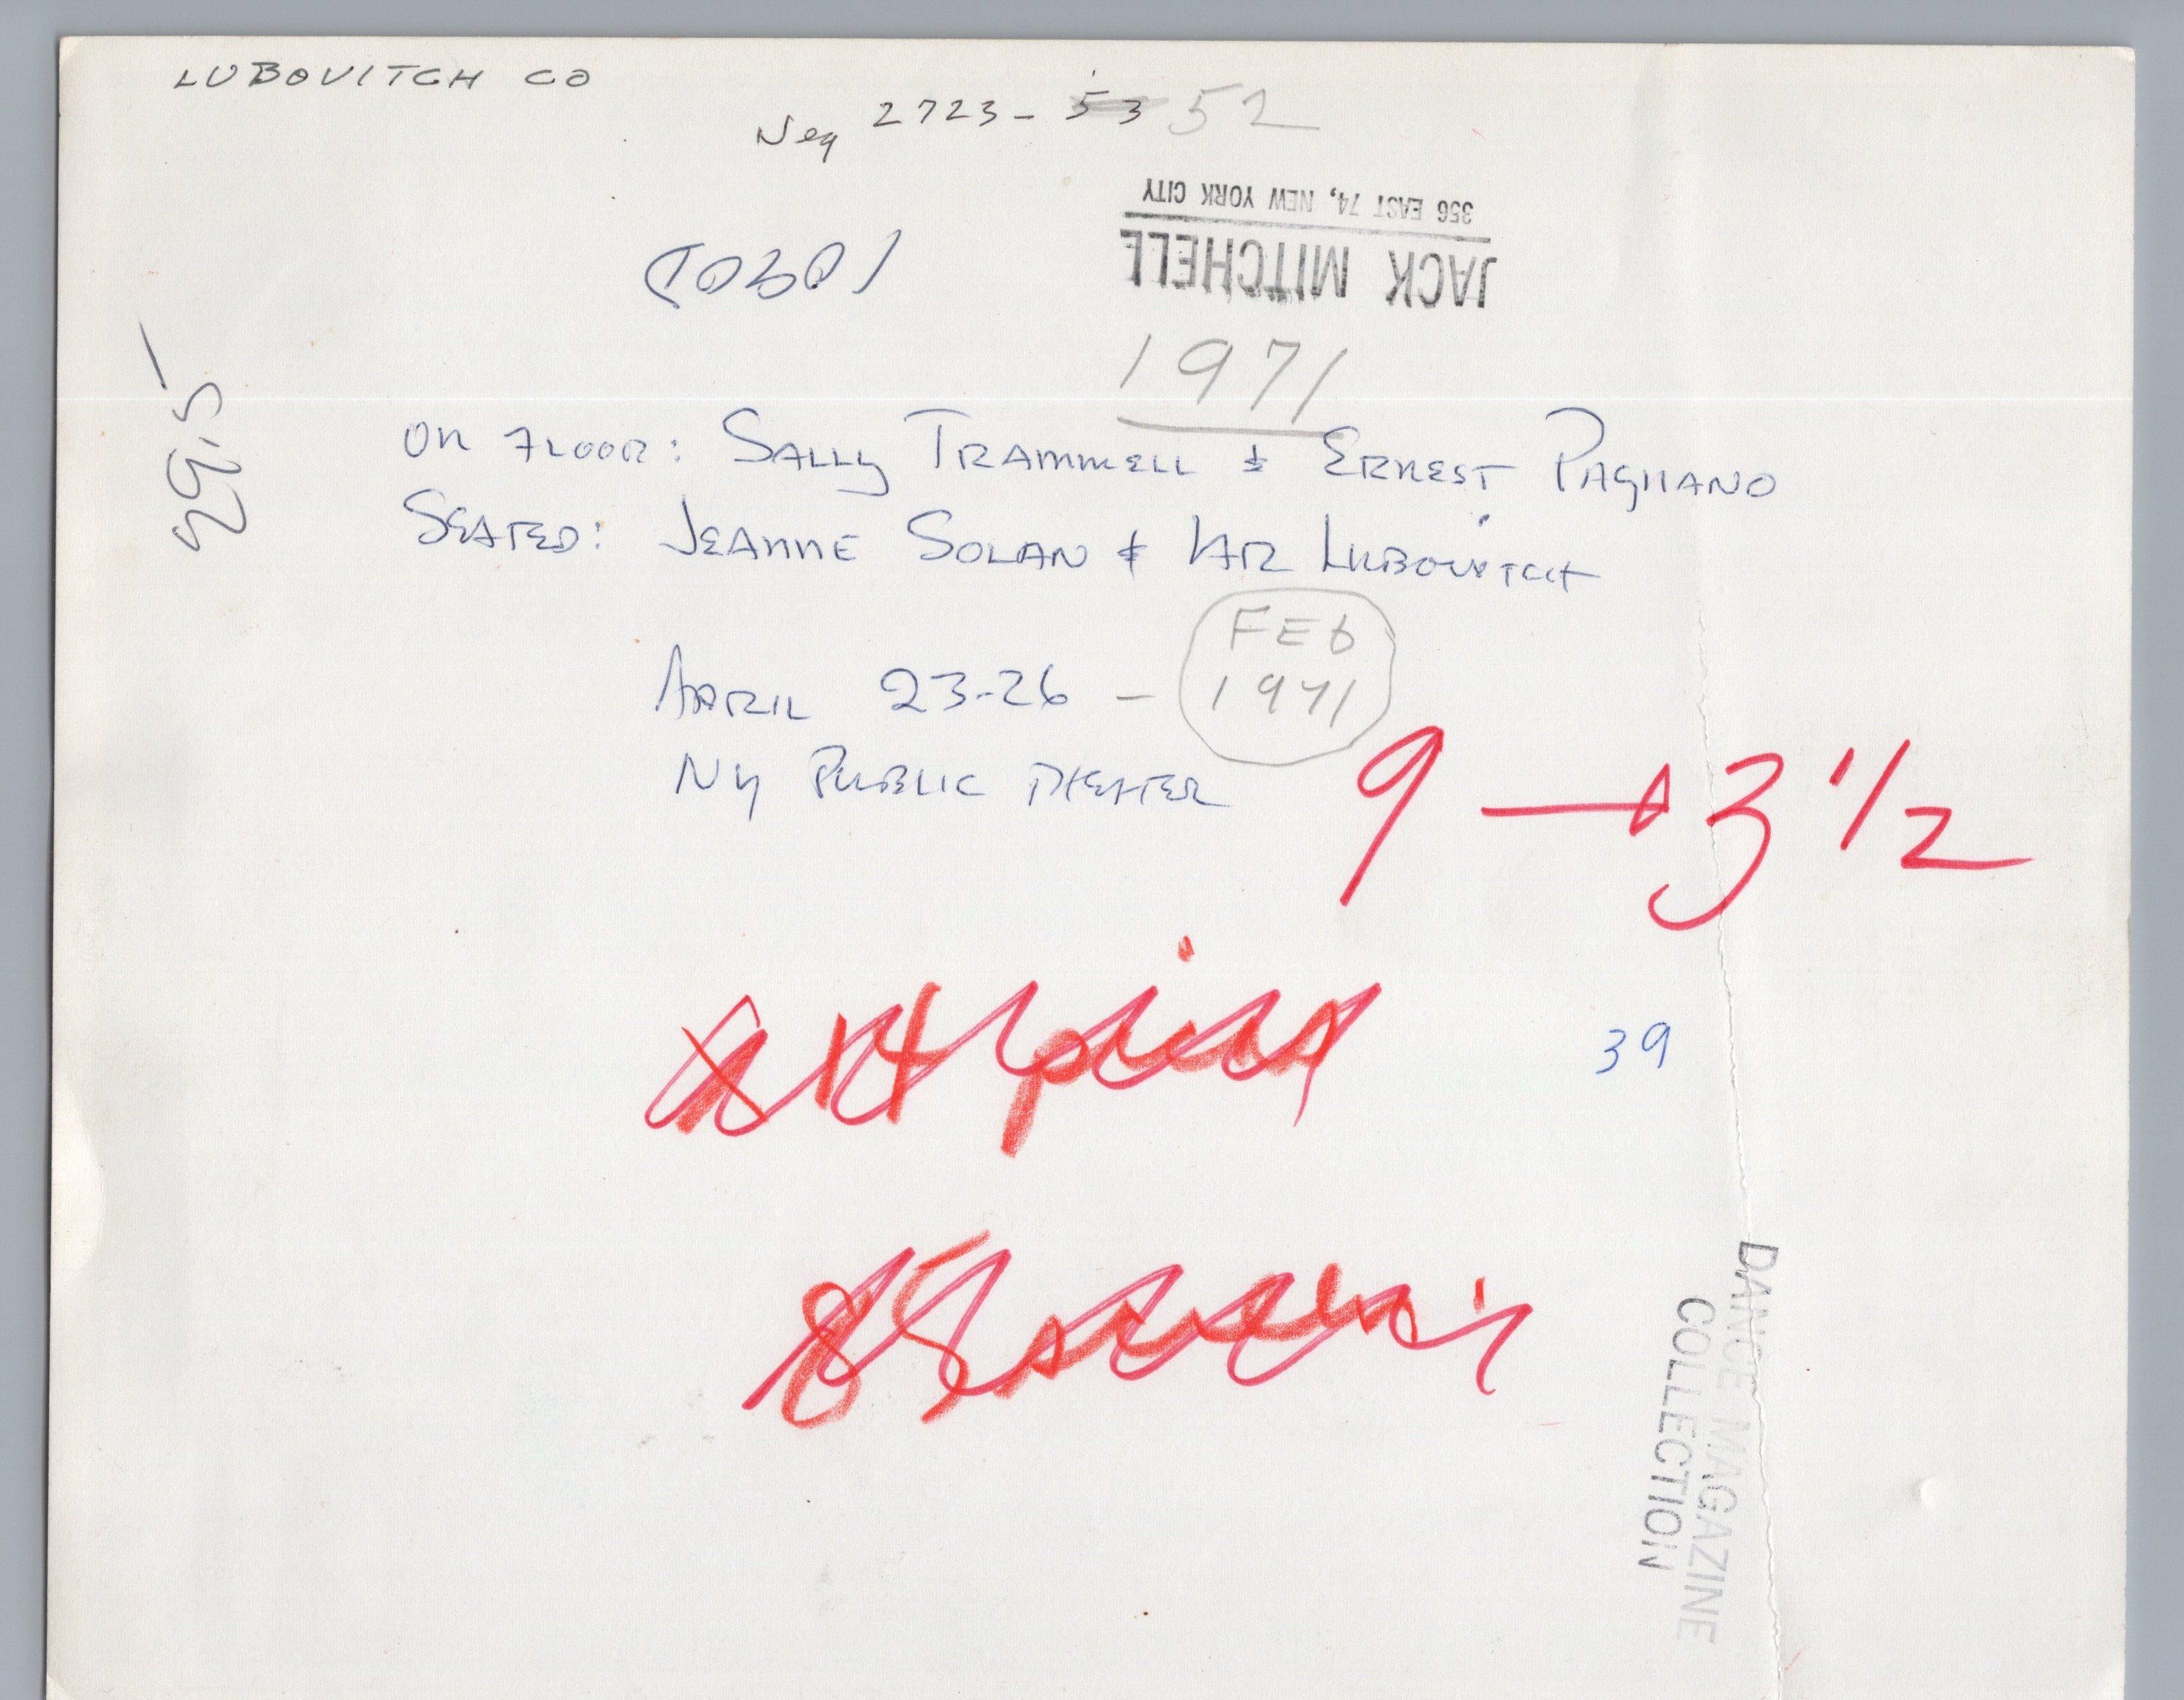 LUBOVITCH CO
Neg 2723-53 52
356 EAST 74, NEW YORK CITY
JACK MITCHELL
1971
29.5
ON FLOOR: SALLY TRAMMELL & ERNEST PAGLIANO
SEATED: JEANNE SOLAN & LAR LUBOVITCH
FEB
1971
APRIL 23-26 -
NY PUBLIC THEATER
9 → 3 1/2
39
DANCE MAGAZINE
COLLECTION